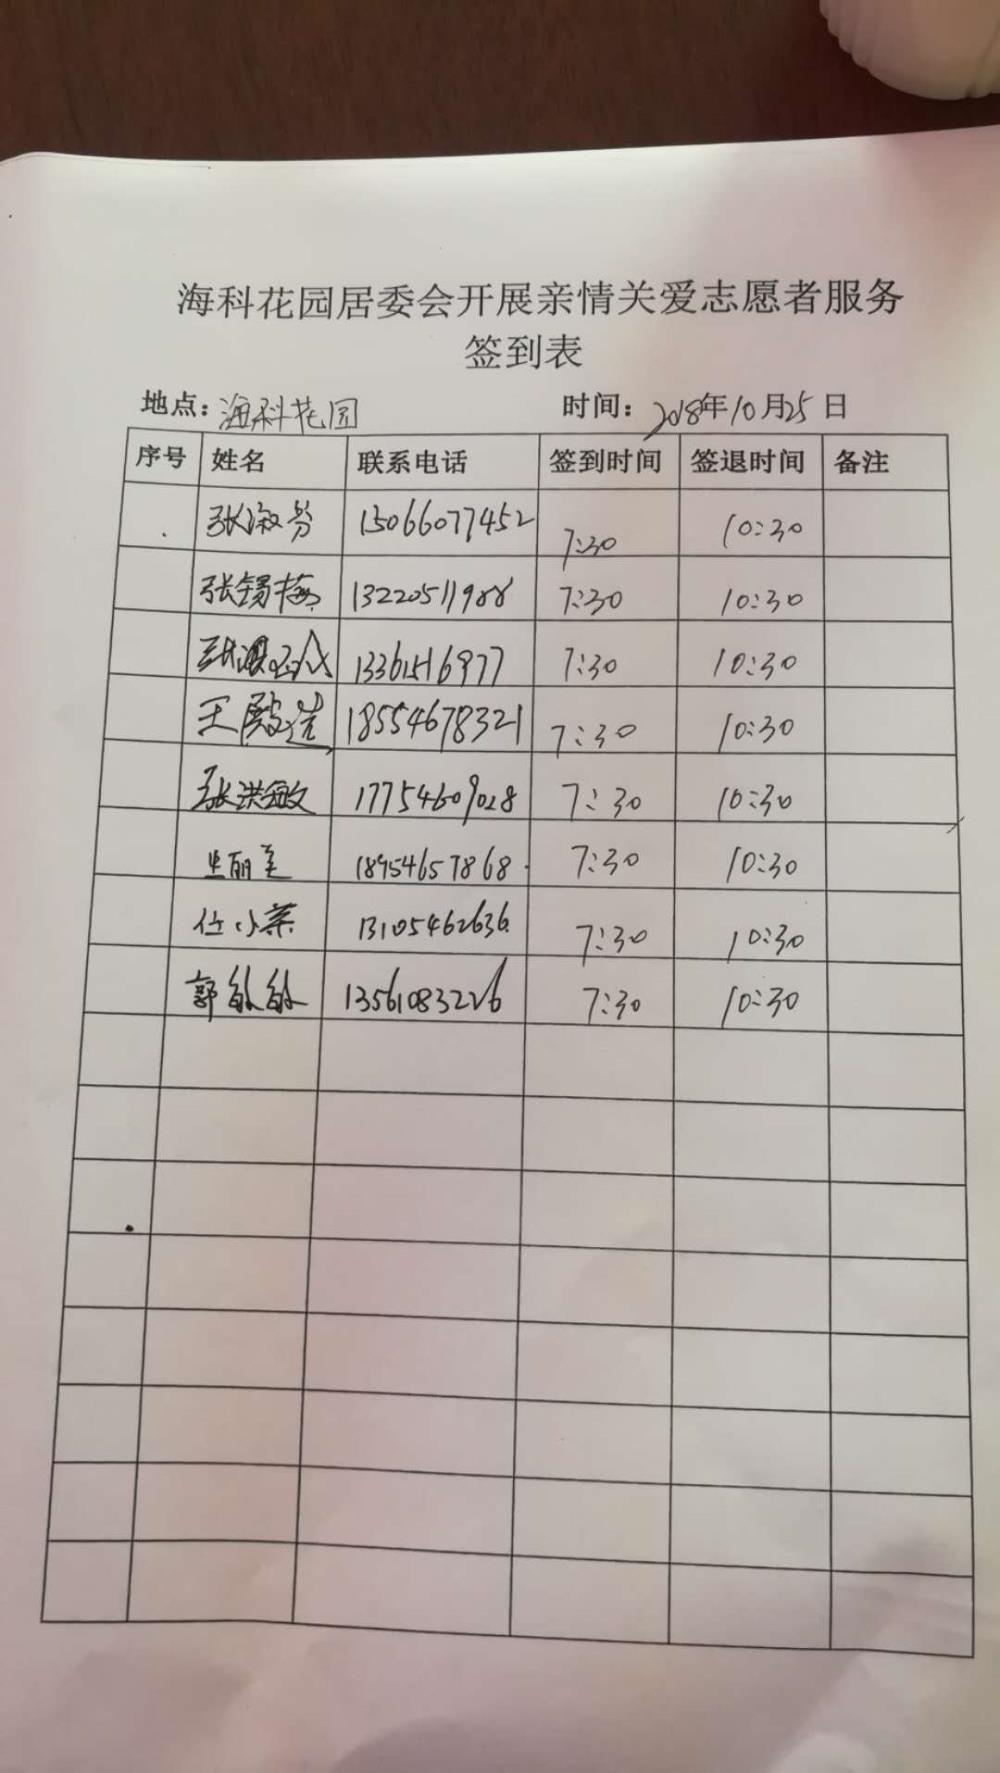 海科花园居委会开展亲情关爱志愿者服务
签到表
地点：海科花园 时间：2018年10月25日
序号 姓名 联系电话 签到时间 签退时间 备注
张淑芳 15066077452 7:30 10:30
张锡梅 13220511988 7:30 10:30
7:30 10:30
王殿造 18554678321 7:30 10:30
张洪敏 17754609028 7:30 10:30
丽美 18954657868 7:30 10:30
任小荣 13105462636 7:30 10:30
郭敏敏 13561083226 7:30 10:30